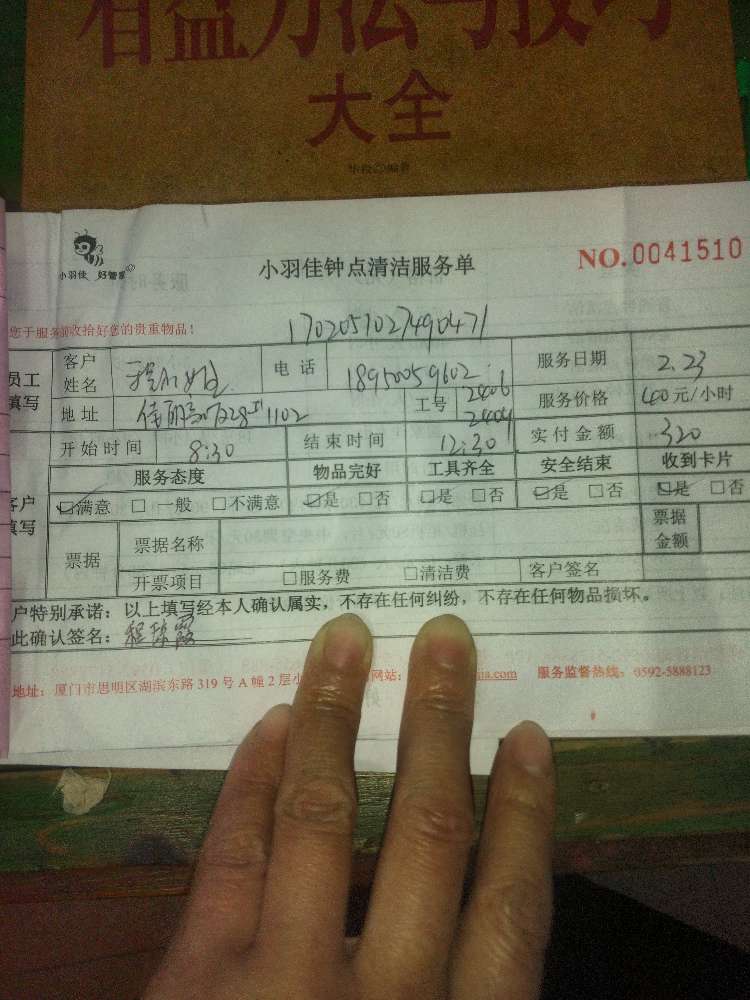 看盘方法与技巧
大全
小羽佳 好管家
小羽佳钟点清洁服务单
NO.0041510
您于服务前收拾好您的贵重物品！
1702051027490471
员工填写 客户姓名 电话 18950059602 服务日期 2.23
地址 1102 工号 2406 2404 服务价格 40元/小时
开始时间 8:30 结束时间 12:30 实付金额 320
服务态度 物品完好 工具齐全 安全结束 收到卡片
客户填写 ☑满意 □一般 □不满意 ☑是 □否 ☑是 □否 ☑是 □否 ☑是 □否
票据 票据名称 票据金额
开票项目 □服务费 □清洁费 客户签名
户特别承诺：以上填写经本人确认属实，不存在任何纠纷，不存在任何物品损坏。
此确认签名：
地址：厦门市思明区湖滨东路319号A幢2层小 网站： .com 服务监督热线：0592-5888123